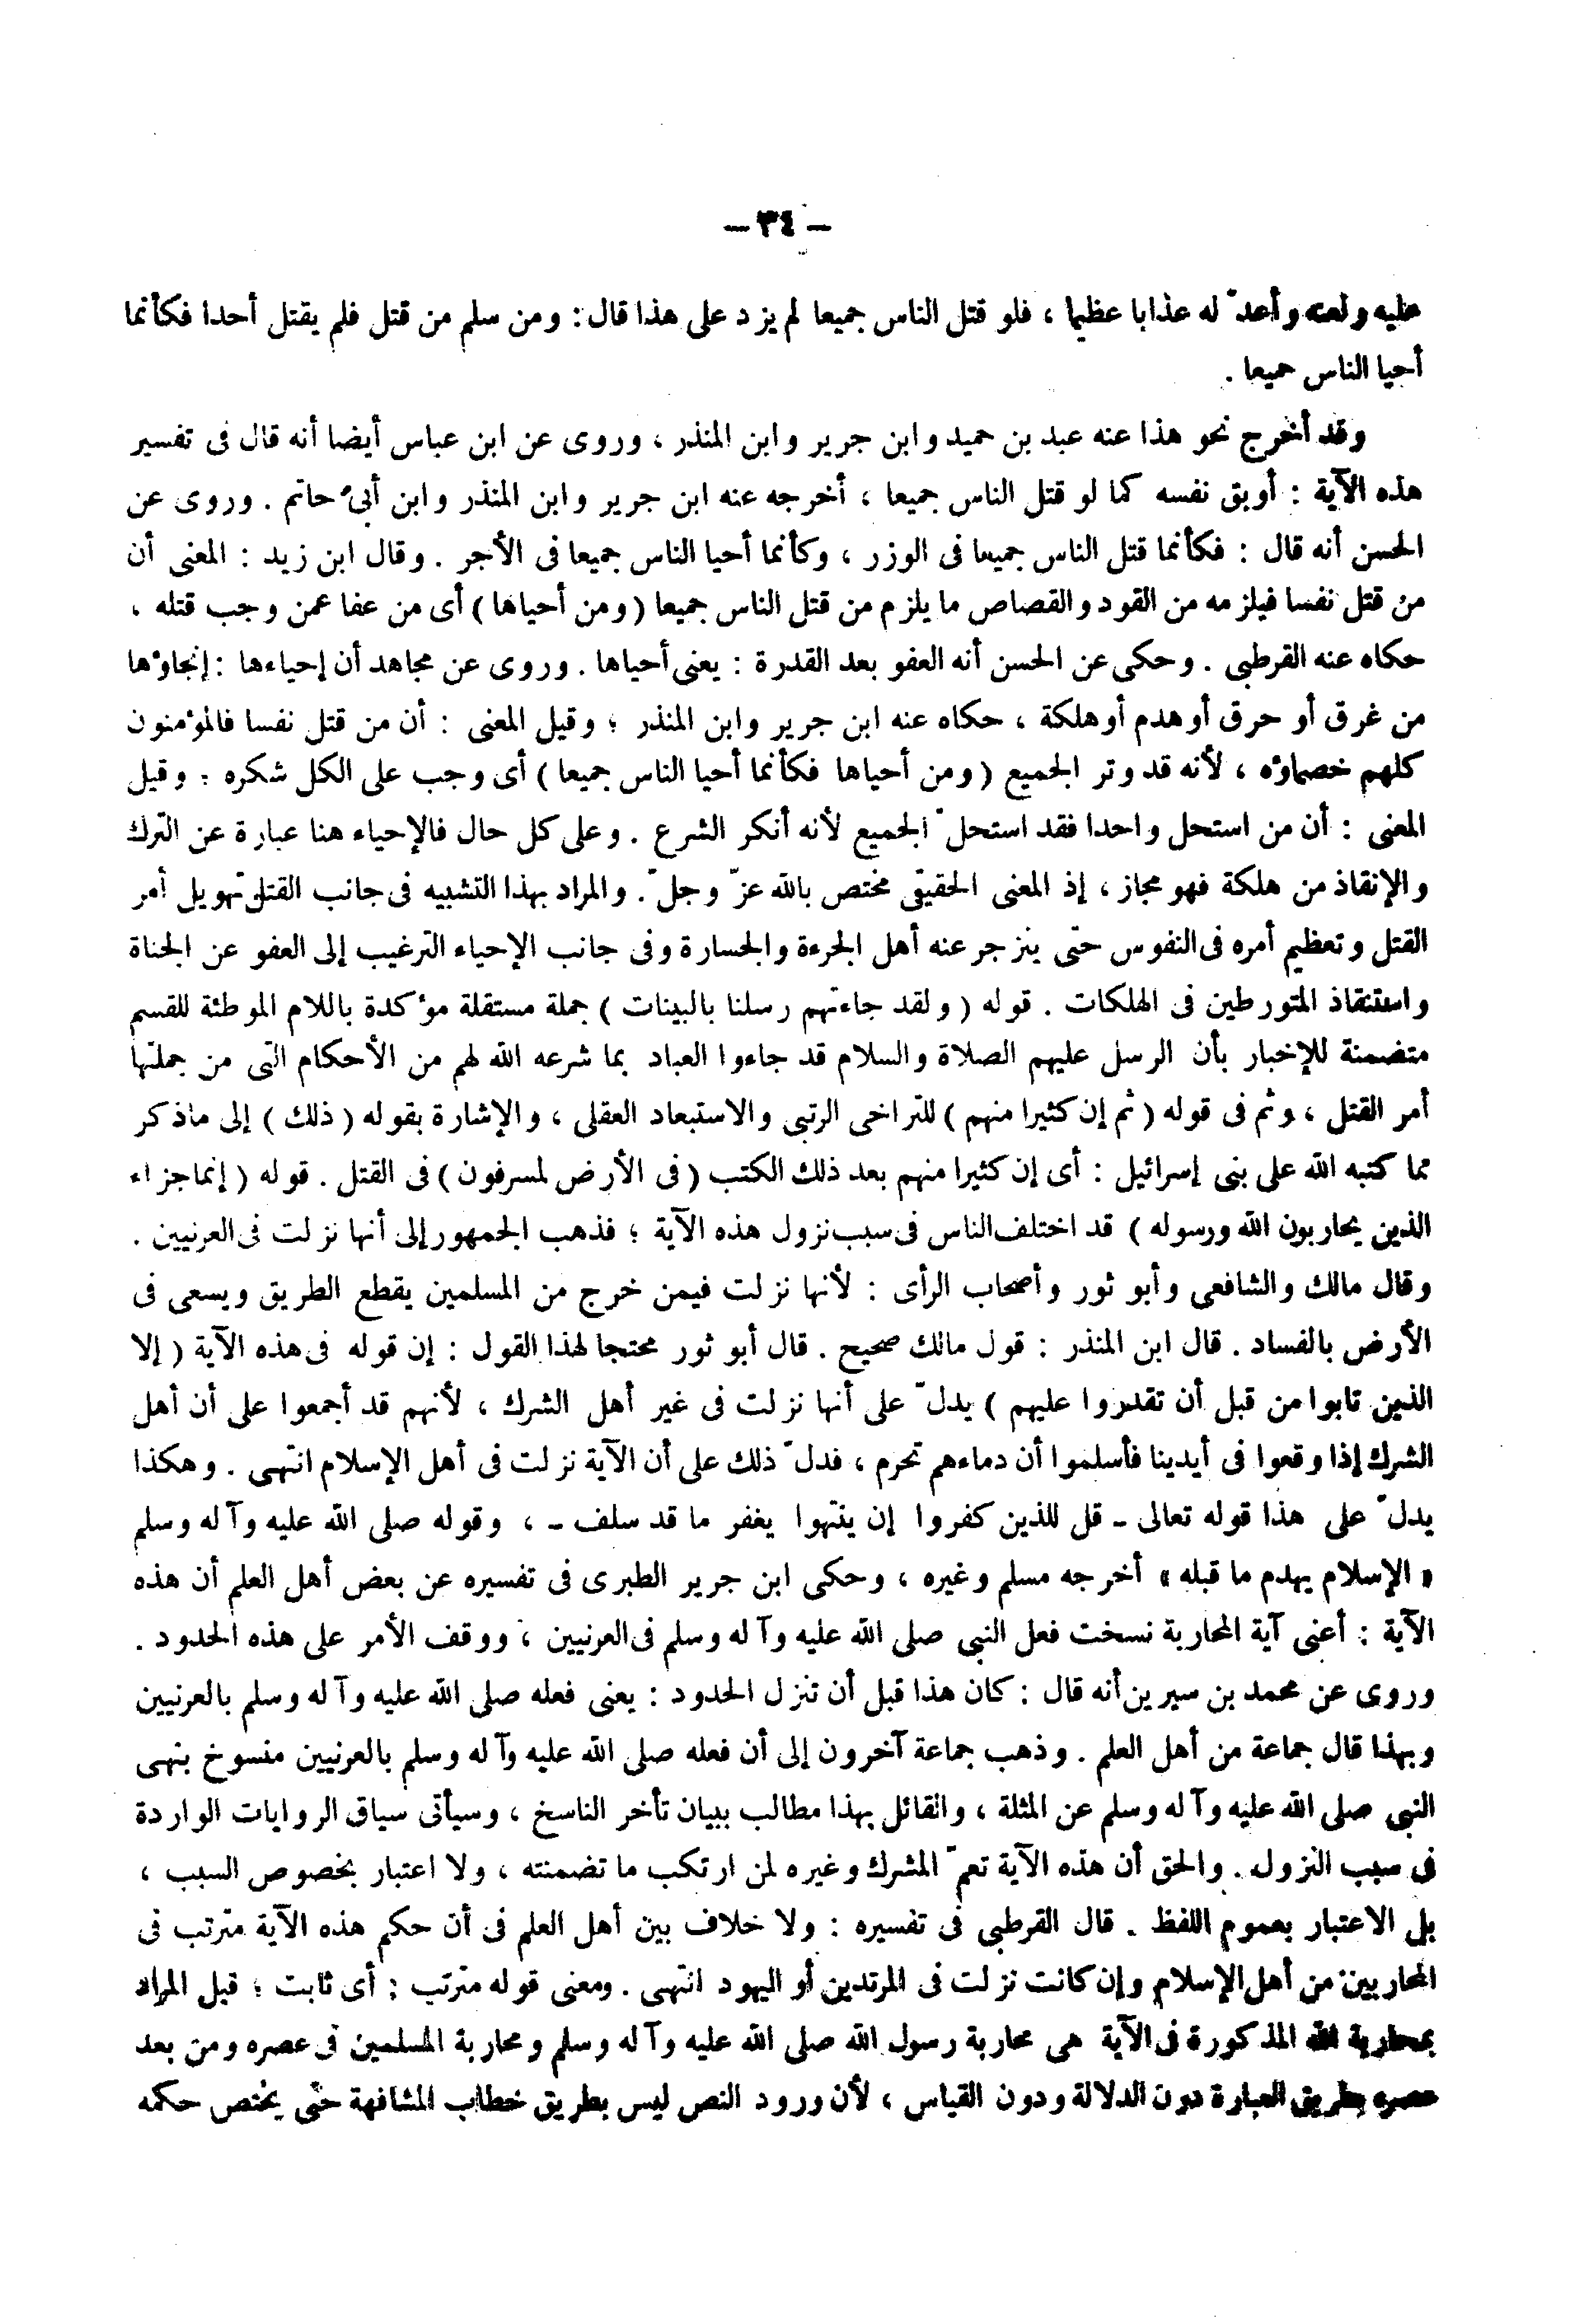 – ٣٤ –
عليه ولعنه وأعدّ له عذابا عظيما ، فلو قتل الناس جميعا لم يزد على هذا قال : ومن سلم من قتل فلم يقتل أحدا فكأنما
أحيا الناس جميعا .
وقد أخرج نحو هذا عنه عبد بن حميد وابن جرير وابن المنذر ، وروى عن ابن عباس أيضا أنه قال فى تفسير
هذه الآية : أوبق نفسه كما لو قتل الناس جميعا ، أخرجه عنه ابن جرير وابن المنذر وابن أبى حاتم . وروى عن
الحسن أنه قال : فكأنما قتل الناس جميعا فى الوزر ، وكأنما أحيا الناس جميعا فى الأجر . وقال ابن زيد : المعنى أن
من قتل نفسا فيلزمه من القود والقصاص ما يلزم من قتل الناس جميعا ( ومن أحياها ) أى من عفا عمن وجب قتله ،
حكاه عنه القرطبى . وحكى عن الحسن أنه العفو بعد القدرة : يعنى أحياها . وروى عن مجاهد أن إحياءها : إنجاؤها
من غرق أو حرق أو هدم أو هلكة ، حكاه عنه ابن جرير وابن المنذر ؛ وقيل المعنى : أن من قتل نفسا فالمؤمنون
كلهم خصماؤه ، لأنه قد وتر الجميع ( ومن أحياها فكأنما أحيا الناس جميعا ) أى وجب على الكل شكره : وقيل
المعنى : أن من استحل واحدا فقد استحلّ الجميع لأنه أنكر الشرع . وعلى كل حال فالإحياء هنا عبارة عن الترك
والإنقاذ من هلكة فهو مجاز ، إذ المعنى الحقيقى مختص بالله عزّ وجلّ . والمراد بهذا التشبيه فى جانب القتل تهويل أمر
القتل وتعظيم أمره فى النفوس حتى ينزجر عنه أهل الجرءة والجسارة وفى جانب الإحياء الترغيب إلى العفو عن الجناة
واستنقاذ المتورطين فى الهلكات . قوله ( ولقد جاءتهم رسلنا بالبينات ) جملة مستقلة مؤكدة باللام الموطئة للقسم
متضمنة للإخبار بأن الرسل عليهم الصلاة والسلام قد جاءوا العباد بما شرعه الله لهم من الأحكام التى من جملتها
أمر القتل ، وثم فى قوله ( ثم إن كثيرا منهم ) للتراخى الرتبى والاستبعاد العقلى ، والإشارة بقوله ( ذلك ) إلى ماذكر
مما كتبه الله على بنى إسرائيل : أى إن كثيرا منهم بعد ذلك الكتب ( فى الأرض لمسرفون ) فى القتل . قوله ( إنما جزاء
الذين يحاربون الله ورسوله ) قد اختلف الناس فى سبب نزول هذه الآية ؛ فذهب الجمهور إلى أنها نزلت فى العرنيين .
وقال مالك والشافعى وأبو ثور وأصحاب الرأى : لأنها نزلت فيمن خرج من المسلمين يقطع الطريق ويسعى فى
الأرض بالفساد . قال ابن المنذر : قول مالك صحيح . قال أبو ثور محتجا لهذا القول : إن قوله فى هذه الآية ( إلا
الذين تابوا من قبل أن تقدروا عليهم ) يدلّ على أنها نزلت فى غير أهل الشرك ، لأنهم قد أجمعوا على أن أهل
الشرك إذا وقعوا فى أيدينا فأسلموا أن دماءهم تحرم ، فدلّ ذلك على أن الآية نزلت فى أهل الإسلام انتهى . وهكذا
يدلّ على هذا قوله تعالى ـ قل للذين كفروا إن ينتهوا يغفر ما قد سلف ـ ، وقوله صلى الله عليه وآله وسلم
« الإسلام يهدم ما قبله » أخرجه مسلم وغيره ، وحكى ابن جرير الطبرى فى تفسيره عن بعض أهل العلم أن هذه
الآية : أعنى آية المحاربة نسخت فعل النبى صلى الله عليه وآله وسلم فى العرنيين ، ووقف الأمر على هذه الحدود .
وروى عن محمد بن سيرين أنه قال : كان هذا قبل أن تنزل الحدود : يعنى فعله صلى الله عليه وآله وسلم بالعرنيين
وبهذا قال جماعة من أهل العلم . وذهب جماعة آخرون إلى أن فعله صلى الله عليه وآله وسلم بالعرنيين منسوخ بنهى
النبى صلى الله عليه وآله وسلم عن المثلة ، والقائل بهذا مطالب ببيان تأخر الناسخ ، وسيأتى سياق الروايات الواردة
فى سبب النزول . والحق أن هذه الآية تعمّ المشرك وغيره لمن ارتكب ما تضمنته ، ولا اعتبار بخصوص السبب ،
بل الاعتبار بعموم اللفظ . قال القرطبى فى تفسيره : ولا خلاف بين أهل العلم فى أن حكم هذه الآية مترتب فى
المحاربين من أهل الإسلام وإن كانت نزلت فى المرتدين أو اليهود انتهى . ومعنى قوله مترتب : أى ثابت ؛ قيل المراد
بمحاربة الله المذكورة فى الآية هى محاربة رسول الله صلى الله عليه وآله وسلم ومحاربة المسلمين فى عصره ومن بعد
عصره بطريق العبارة دون الدلالة ودون القياس ، لأن ورود النص ليس بطريق خطاب المشافهة حتى يختص حكمه